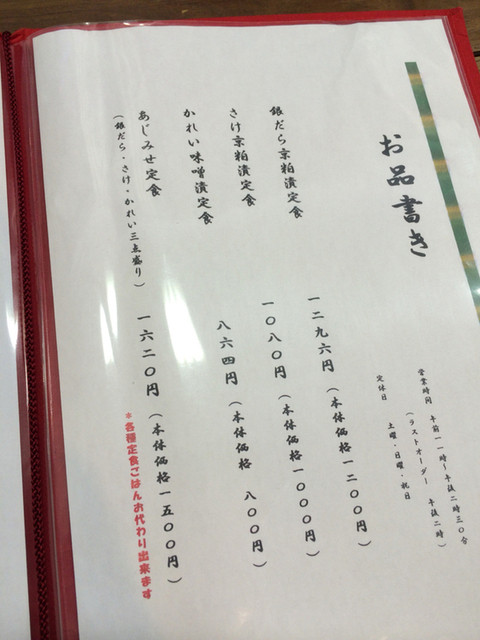 お品書き
営業時間 午前一一時～午後二時三〇分
(ラストオーダー 午後二時)
定休日 土曜・日曜・祝日
銀だら京粕漬定食 一二九六円(本体価格一二〇〇円)
さけ京粕漬定食 一〇八〇円(本体価格一〇〇〇円)
かれい味噌漬定食 八六四円(本体価格 八〇〇円)
あじみせ定食 一六二〇円(本体価格一五〇〇円)
(銀だら・さけ・かれい三点盛り)
*各種定食ごはんお代わり出来ます